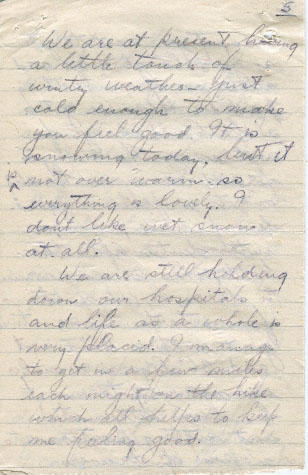 5
We are at present having
a little touch of
winty weather - just
cold enough to make
you feel good. It is
snowing today, but it
is
not over warm so
everything is lovely. I
don't like wet snow
at all.
We are still holding
down our hospitals
and life as a whole is
very placid. I manage
to get in a few miles
each night on the bike
which all helps to keep
me feeling good.